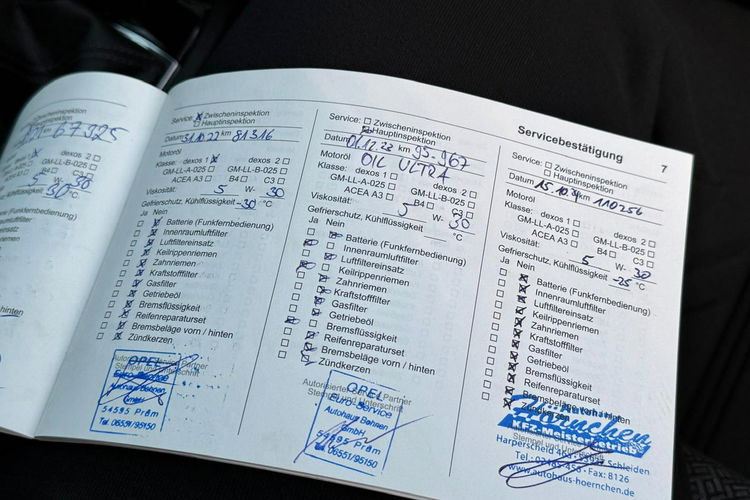 Servicebestätigung
7
Zwischeninspektion
Hauptinspektion
km 67325
dexos 2
GM-LL-B-025
C3
5 W- 30
Kühlflüssigkeit -30 °C
Service: Zwischeninspektion
Hauptinspektion
Datum 31.10.22 km 81316
Motoröl
Klasse: dexos 1 dexos 2
GM-LL-A-025 GM-LL-B-025
ACEA A3 B4 C3
Viskosität: 5 W- 30
Gefrierschutz, Kühlflüssigkeit -30 °C
Ja Nein
Batterie (Funkfernbedienung)
Innenraumluftfilter
Luftfiltereinsatz
Keilrippenriemen
Zahnriemen
Kraftstofffilter
Gasfilter
Getriebeöl
Bremsflüssigkeit
Reifenreparaturset
Bremsbeläge vorn / hinten
Zündkerzen
Autorisierter Service Partner
Stempel und Unterschrift
OPEL
Euro Service
Autohaus Behnen
GmbH
54595 Prüm
Tel. 06551/95150
Service: Zwischeninspektion
Hauptinspektion
Datum 01.12.23 km 95.967
Motoröl OIL ULTRA
Klasse: dexos 1 dexos 2
GM-LL-A-025 GM-LL-B-025
ACEA A3 B4 C3
Viskosität: 5 W- 30
Gefrierschutz, Kühlflüssigkeit °C
Ja Nein
Batterie (Funkfernbedienung)
Innenraumluftfilter
Luftfiltereinsatz
Keilrippenriemen
Zahnriemen
Kraftstofffilter
Gasfilter
Getriebeöl
Bremsflüssigkeit
Reifenreparaturset
Bremsbeläge vorn / hinten
Zündkerzen
Autorisierter Service Partner
Stempel und Unterschrift
OPEL
Euro Service
Autohaus Behnen
GmbH
54595 Prüm
Tel. 06551/95150
Service: Zwischeninspektion
Hauptinspektion
Datum 15.10.24 km 110256
Motoröl
Klasse: dexos 1 dexos 2
GM-LL-A-025 GM-LL-B-025
ACEA A3 B4 C3
Viskosität: 5 W- 30
Gefrierschutz, Kühlflüssigkeit -25 °C
Ja Nein
Batterie (Funkfernbedienung)
Innenraumluftfilter
Luftfiltereinsatz
Keilrippenriemen
Zahnriemen
Kraftstofffilter
Gasfilter
Getriebeöl
Bremsflüssigkeit
Reifenreparaturset
Bremsbeläge vorn / hinten
Zündkerzen
Autohaus
Hörnchen
KFZ-Meisterbetrieb
Stempel und Unterschrift
Harperscheid Schleiden
Fax: 8126
www.autohaus-hoernchen.de